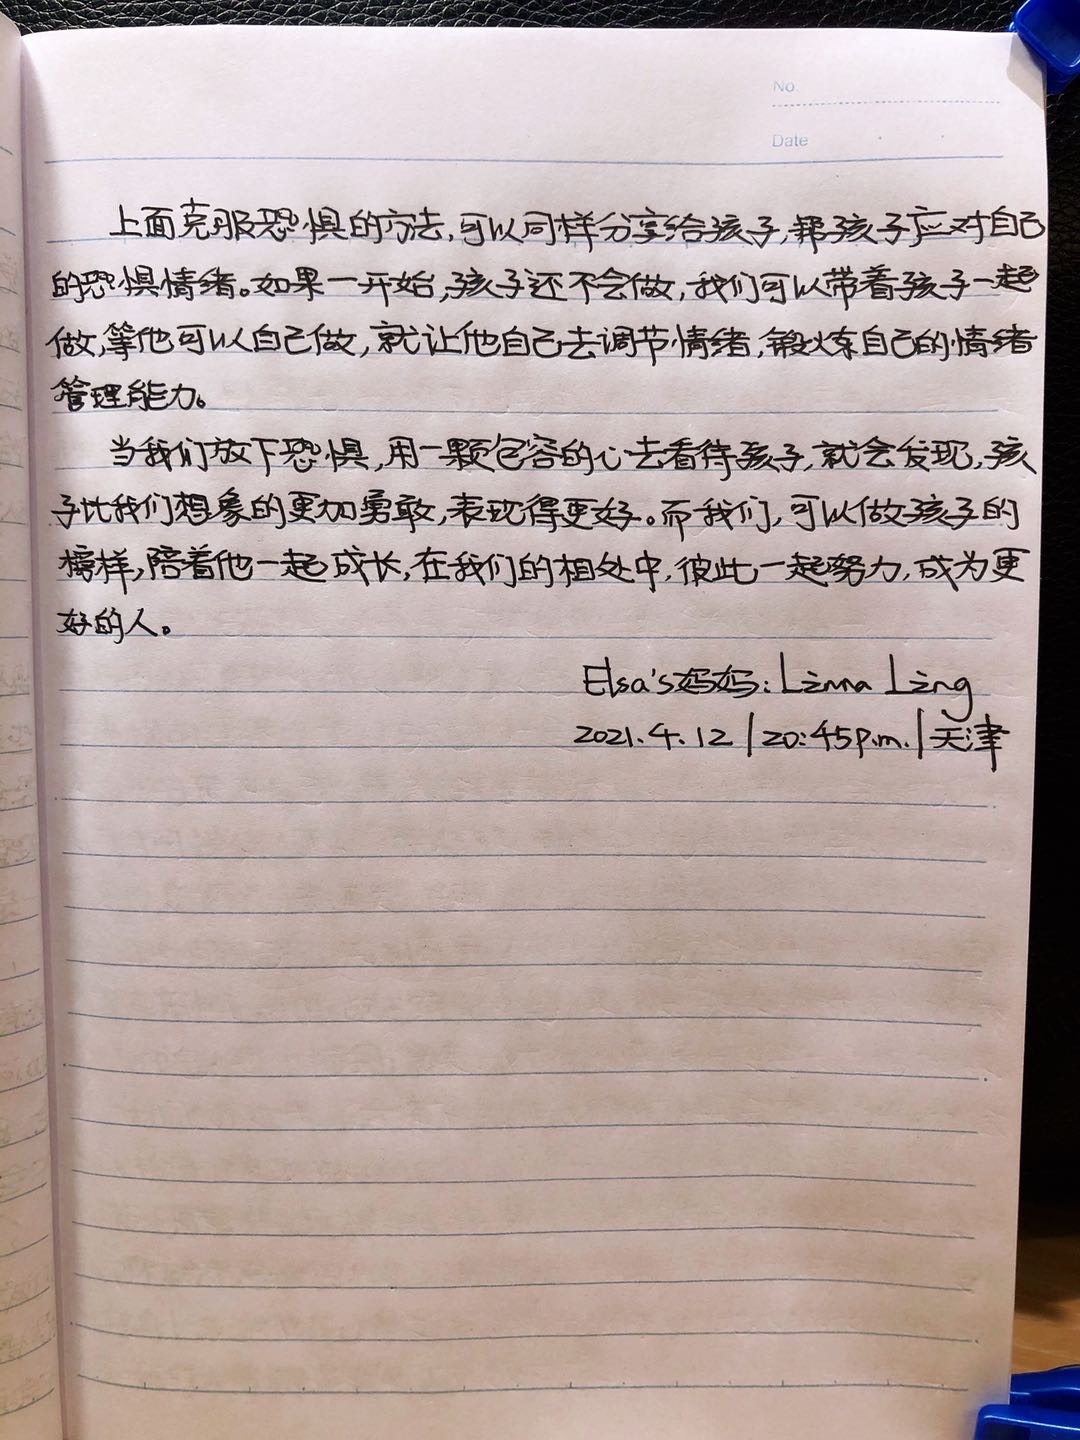 No.
Date
上面克服恐惧的方法,可以同样分享给孩子,帮孩子应对自己
的恐惧情绪。如果一开始,孩子还不会做,我们可以带着孩子一起
做,等他可以自己做,就让他自己去调节情绪,锻炼自己的情绪
管理能力。
当我们放下恐惧,用一颗包容的心去看待孩子,就会发现,孩
子比我们想象的更加勇敢,表现得更好。而我们,可以做孩子的
榜样,陪着他一起成长,在我们的相处中,彼此一起努力,成为更
好的人。
Elsa's妈妈:Linna Ling
2021.4.12|20:45p.m.|天津